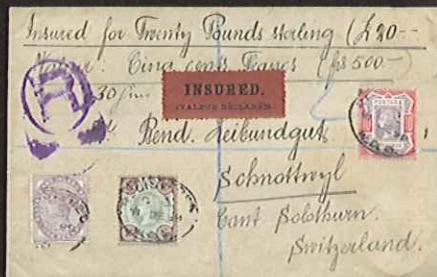 Insured for Twenty Pounds sterling (£20.--
Valeur: Cinq cents Francs (frs 500--
INSURED.
(VALEUR DÉCLARÉE.)
POSTAGE
Bend. Leibundgut
Schnottwyl
Cant Solothurn.
Switzerland.